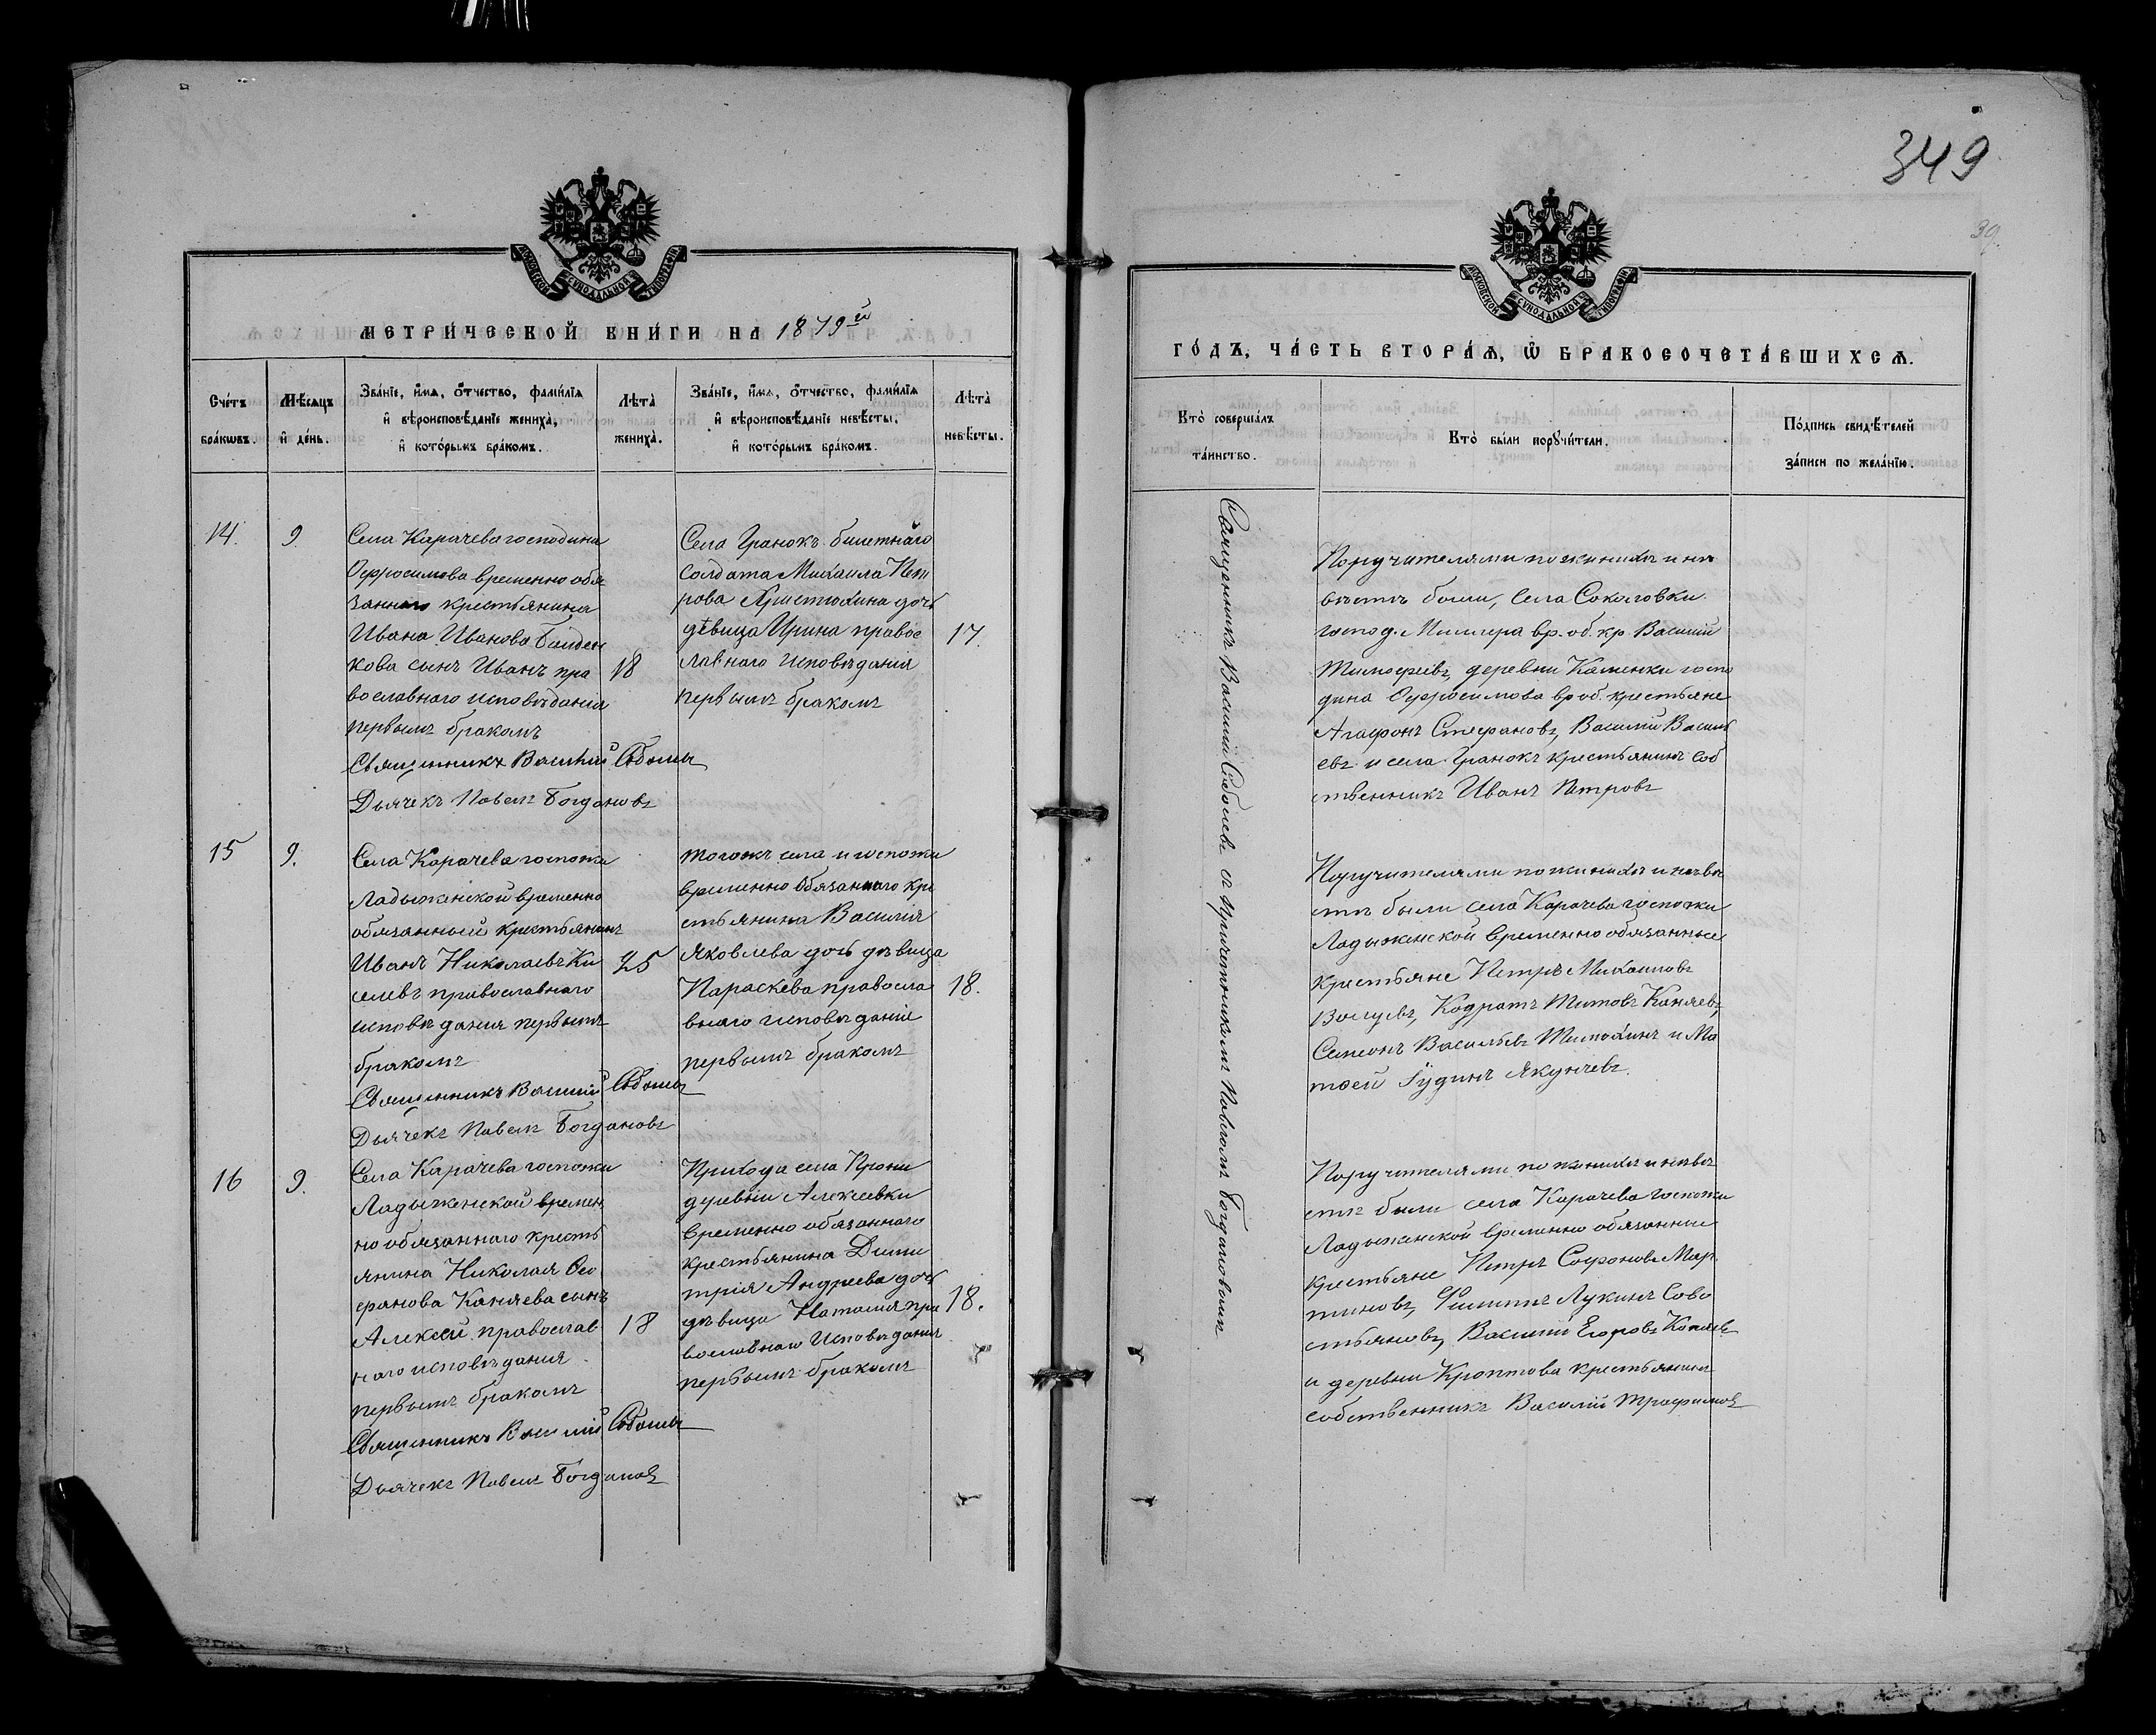 349
39
МОСКОВСКОЙ СѴНОДАЛЬНОЙ ТИПОГРАФІИ
МЕТРИ́ЧЕСКОЙ КНИ́ГИ НА 1879й
Сче́тъ бра́кѡвъ.
Мѣ́сяцъ и҆ де́нь.
Зва́нїе, и҆́мѧ, ѻ҆́тчество, фами́лїѧ
и҆ вѣроисповѣ́данїе жениха̀,
и҆ кото́рымъ бра́комъ.
Лѣ́та̀ жениха̀.
Зва́нїе, и҆́мѧ, ѻ҆́тчество, фами́лїѧ
и҆ вѣроисповѣ́данїе невѣ́сты,
и҆ кото́рымъ бра́комъ.
Лѣ́та̀ невѣ́сты.
14.
9
Села Карачева господина
Офросимова временно обя
заннаго крестьянина
Ивана Иванова
кова сынъ Иванъ пра
вославнаго исповѣданія
первымъ бракомъ
18
Села Гранокъ билетнаго
солдата Михаила Пет
рова Христюхина дочь
дѣвица Ирина правос
лавнаго исповѣданія
первымъ бракомъ
17.
Священникъ Василій Соболевъ
Дьячекъ Павелъ Богдановъ
15
9.
Села Карачева госпожи
Ладыженской временно
обязанный крестьянинъ
Иванъ Николаевъ Ки
селевъ православнаго
исповѣданія первымъ
бракомъ
25
тогожъ села и госпожи
временно обязаннаго кре
стьянина Василія
Яковлева дочь дѣвица
Параскева правосла
внаго исповѣданіе
первымъ бракомъ
18.
Священникъ Василій Соболевъ
Дьячекъ Павелъ Богдановъ
16
9.
Села Карачева госпожи
Ладыженской времен
но обязаннаго кресть
янина Николая Ѳео
фанова Каняева сынъ
Алексей православ
наго исповѣданія
первымъ бракомъ
18
Прихода села Прони
деревни Алексеевки
временно обязаннаго
крестьянина Дими
трія Андреева дочь
дѣвица Наталия пра
вославнаго Исповѣданія
первымъ бракомъ
18.
Священникъ Василій Соболевъ
Дьячекъ Павелъ Богдановъ
ГО́ДЪ, ЧА́СТЬ ВТОРА́Ѧ, Ѽ БРАКОСОЧЕТА́ВШИХСѦ.
Кто̀ соверша́лъ
та́инство.
Кто̀ бы́ли порꙋчи́тели.
По́дпись свидѣ́телей
за́писи по жела́нїю.
Священникъ Василій Соболевъ съ причетникомъ Павломъ Богдановымъ
Поручителями по женихѣ и не
вѣстѣ были, села Соколовки
господ. Миллера вр. об. кр. Василий
Тимофеевъ, деревни Каменки госпо
дина Офросимова вр об. крестьяне
Агафонъ Стефановъ, Василий Василь
евъ и села Гранокъ крестьянинъ соб
ственникъ Иванъ Петровъ
Поручителями по женихѣ и невѣ
стѣ были села Карачева госпожи
Ладыженской временно обязанные
крестьяне Петръ Михаиловъ
Кодратъ Титовъ Каняевъ,
Семенъ Васильевъ Тимохинъ и Ма
твей Гудинъ Якунчевъ.
Поручителями по женихѣ и невѣ
стѣ были села Карачева госпожи
Ладыженской временно обязанные
крестьяне Петръ Софоновъ Мар
тиновъ, Филиппъ Лукинъ Сево
стьяновъ, Василий Егоровъ Каняевъ
и деревни Кроптова крестьянинъ
собственникъ Василій Трофимовъ